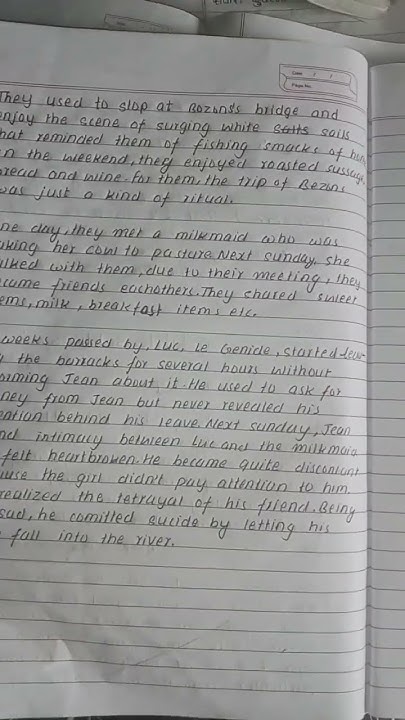 Date / /
Page No.
They used to stop at Bozons's bridge and
enjoy the scene of surging white sails
that reminded them of fishing smacks of
on the weekend, they enjoyed roasted sussage
bread and wine. for them, the trip of Bezons
was just a kind of ritual.
one day, they met a milkmaid who was
aking her cow to pasture. Next sunday, she
alked with them, due to their meeting, they
came friends eachothers. They shared sweet
ems, milk, breakfast items etc.
weeks passed by. Luc, Le Genide, started
the barracks for several hours without
orming Jean about it. He used to ask for
ney from Jean but never revealed his
ention behind his leave. Next sunday, Jean
nd intimacy between Luc and the milkmaid
felt heartbroken. He became quite discontent
use the girl didn't pay attention to him.
realized the tetrayal of his friend. Being
sad, he comitted sucide by letting his
fall into the river.